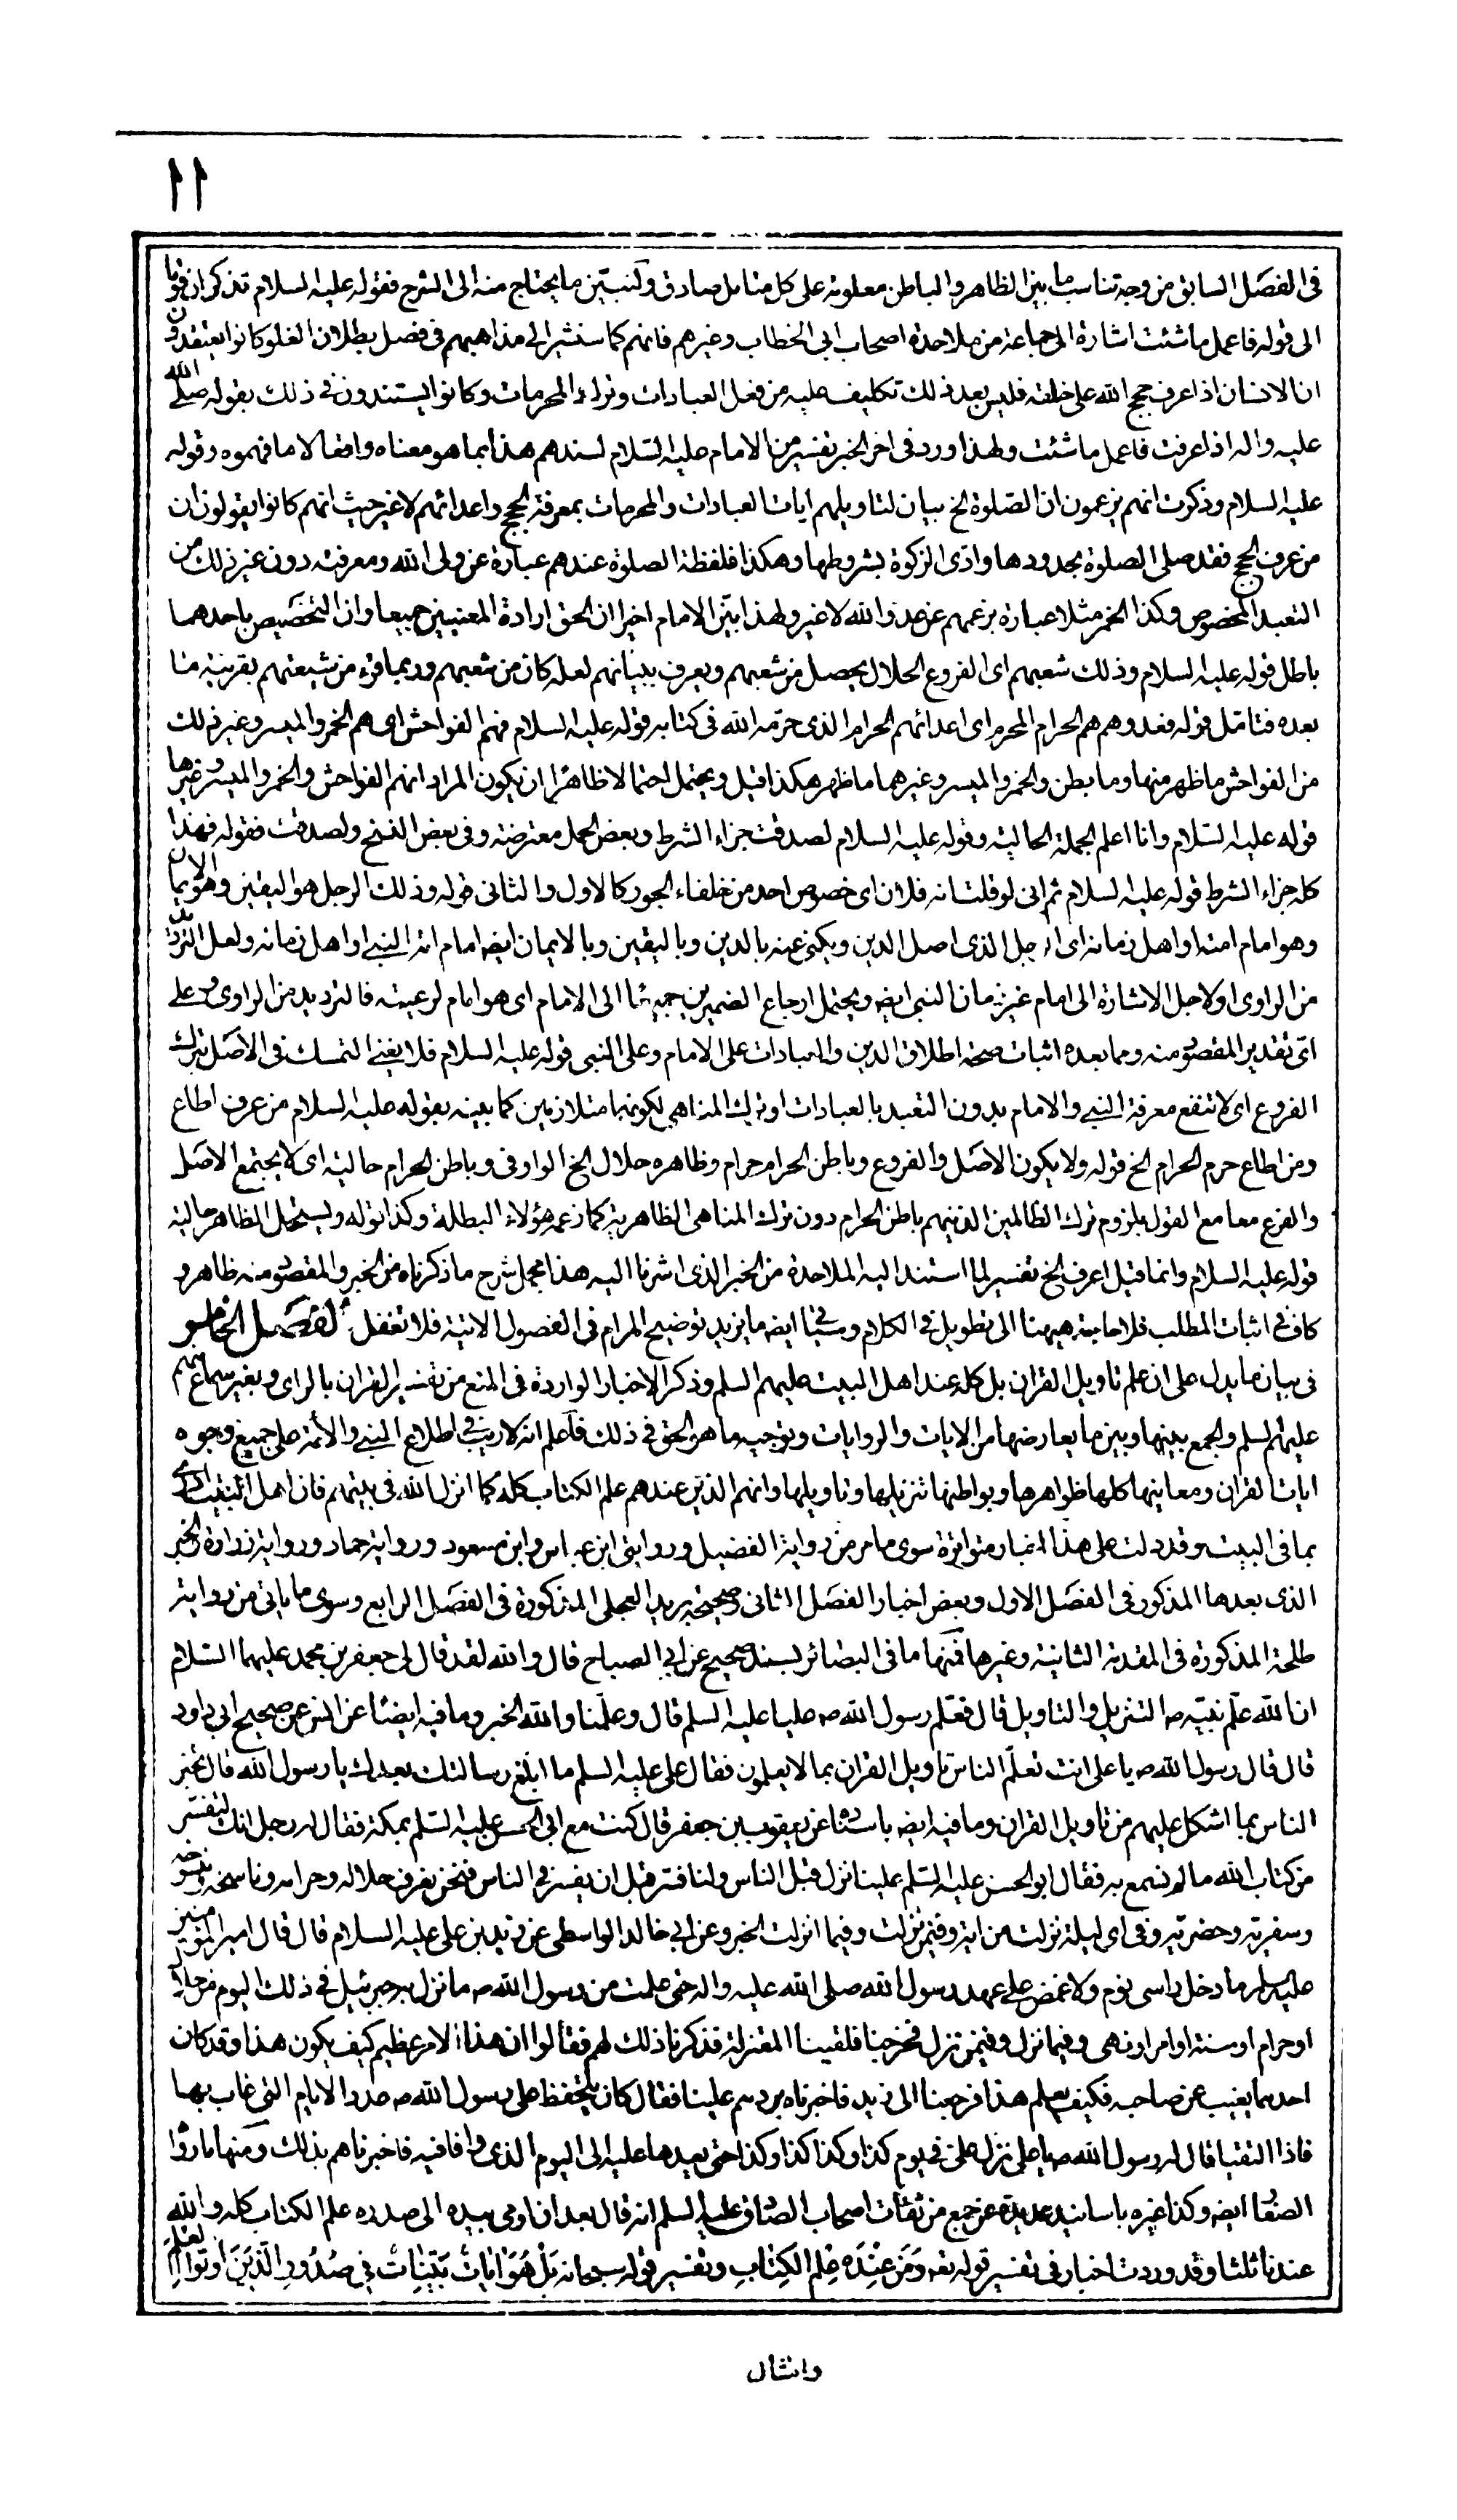 ١١
في الفصل السابق من وجه تناسب ما بين الظاهر والباطن معلومة على كل متامل صادق ولنبين ما يحتاج منه الى الشرح فقوله عليه السلام تذكر ان قوما
الى قوله فاعمل ما شئت اشارة الى جماعة من ملاحدة اصحاب ابي الخطاب وغيرهم فانهم كما سنشير الى مذاهبهم في فصل بطلان الغلو كانوا يعتقدون
ان الانسان اذا عرف حجج الله على خلقه فليس بعد ذلك تكليف عليه من فعل العبادات وترك المحرمات وكانوا يستندون في ذلك بقوله صلى الله
عليه واله اذا عرفت فاعمل ما شئت ولهذا ورد في اخر الخبر تفسير من الامام عليه السلام لسندهم هذا بما هو معناه واقعا لا ما فهموه وقوله
عليه السلام وذكرت انهم يزعمون ان الصلوة الخ بيان لتاويلهم ايات العبادات والمحرمات بمعرفة الحجج واعدائهم لا غير حيث انهم كانوا يقولون ان
من عرف الحجج فقد صلى الصلوة بحدودها وادى الزكوة بشروطها وهكذا فلفظة الصلوة عندهم عبارة عن ولي الله ومعرفته دون غير ذلك من
التعبد المخصوص وكذا الخمر مثلا عبارة بزعمهم عن عدو الله لا غير ولهذا بين الامام اخيرا ان الحق ارادة المعنيين جميعا وان التخصيص باحدهما
باطل قوله عليه السلام وذلك شعبهم اى الفروع الحلال يحصل من شعبهم ويعرف ببيانهم لعله كان من شعبهم وربما قرء من شيعتهم بقرينة ما
بعده فتامل قوله فعدوهم هم الحرام المحرم اى اعدائهم الحرام الذى حرمه الله في كتابه قوله عليه السلام فهم الفواحش اى هم الخمر والميسر وغير ذلك
من الفواحش ما ظهر منها وما بطن والخمر والميسر وغيرهما ما ظهر هكذا قيل ويحتمل احتمالا ظاهرا ان يكون المراد انهم الفواحش والخمر والميسر وغيرها
قوله عليه السلام وانا اعلم الجملة الحالية وقوله عليه السلام لصدقت جزاء الشرط وبعض الجمل معترضة وفي بعض النسخ ولصدقت فقوله فهذا
كله جزاء الشرط قوله عليه السلام ثم اني لو قلت انه فلان اى خصوص احد من خلفاء الجور كالاول والثاني قوله وذلك الرجل هو اليقين وهو الايمان
وهو امام امته او اهل زمانه اى الرجل الذى اصل الدين ويكنى عنه بالدين وباليقين وبالايمان ايضه امام امة النبي او اهل زمانه ولعل الترديد
من الراوى او لاجل الاشارة الى امام غير زمان النبي ايضه ويحتمل ارجاع الضميرين جميعا الى الامام اى هو امام لرعيته فالترديد من الراوى وعلى
اى تقدير المقصود منه ومما بعده اثبات صحة اطلاق الدين والعبادات على الامام وعلى النبي قوله عليه السلام فلا يغني التمسك في الاصل بترك
الفروع اى لا تنفع معرفة النبي والامام بدون التعبد بالعبادات او ترك المناهي لكونها متلازمين كما بينه بقوله عليه السلام من عرف اطاع
ومن اطاع حرم الحرام الخ قوله ولا يكون الاصل والفروع وباطن الحرام حرام وظاهره حلال الخ الواو في وباطن الحرام حالية اى لا يجتمع الاصل
والفرع معا مع القول بلزوم ترك الظالمين الذينهم باطن الحرام دون ترك المناهي الظاهرية كما زعمه هؤلاء البطلة وكذا قوله ويستحل الظاهر حالية
قوله عليه السلام وانما قيل اعرف الخ تفسير لما استند اليه الملاحدة من الخبر الذى اشرنا اليه هذا مجمل شرح ما ذكرناه من الخبر والمقصود منه ظاهر و
كاف في اثبات المطلب فلا حاجة هيهنا الى تطويل في الكلام وسياتي ايضه ما يزيد توضيح المرام في الفصول الاتية فلا تغفل الفصل الخامس
في بيان ما يدل على ان علم تاويل القران بل كله عند اهل البيت عليهم السلم وذكر الاخبار الواردة في المنع من تفسير القران بالراى وبغير سماع منهم
عليهم السلم والجمع بينها وبين ما يعارضها من الايات والروايات وتوجيه ما هو الحق في ذلك فاعلم انه لا ريب في اطلاع النبي والائمة على جميع وجوه
ايات القران ومعانيها كلها ظواهرها وبواطنها تنزيلها وتاويلها وانهم الذين عندهم علم الكتاب كله كما انزل الله في بيتهم فان اهل البيت ادرى
بما في البيت وقد دلت على هذا اخبار متواترة سوى ما مر من رواية الفضيل وروايتي ابن عباس وابن مسعود ورواية حماد ورواية زرارة الخبر
الذى بعدها المذكور في الفصل الاول وبعض اخبار الفصل الثاني وصحيحة بريد العجلي المذكورة في الفصل الرابع وسوى ما ياتي من رواية
طلحة المذكورة في المقدمة الثانية وغيرها فمنها ما في البصائر بسند صحيح عن ابي الصباح قال والله لقد قال لي جعفر بن محمد عليهما السلام
ان الله علم نبيه ص التنزيل والتاويل قال فعلم رسول الله ص عليا عليه السلم قال وعلمنا والله الخبر وما فيه ايضا عن انس عن صحيح ابي داود
قال قال رسول الله ص يا علي انت تعلم الناس تاويل القران بما لا يعلمون فقال علي عليه السلم ما ابلغ رسالتك بعدك يا رسول الله قال تخبر
الناس بما اشكل عليهم من تاويل القران وما فيه ايضه باسناده عن يعقوب بن جعفر قال كنت مع ابي الحسن عليه السلم بمكة فقال له رجل انك لتفسر
من كتاب الله ما لم نسمع به فقال ابو الحسن عليه السلم علينا نزل قبل الناس ولنا فسر قبل ان يفسر في الناس فنحن نعرف حلاله وحرامه وناسخه ومنسوخه
وسفريه وحضريه وفي اى ليلة نزلت من اية وفيمن نزلت وفيما انزلت الخبر وعن ابي خالد الواسطي عن زيد بن علي عليه السلام قال قال امير المؤمنين
عليه السلم ما دخل راسي نوم ولا غمض على عهد رسول الله صلى الله عليه واله حتى علمت من رسول الله ص ما نزل به جبرئيل في ذلك اليوم من حلال
او حرام او سنة او امر او نهي وفيما نزل وفيمن نزل فخرجنا فلقينا المعتزلة فذكرنا ذلك لهم فقالوا ان هذا الامر عظيم كيف يكون هذا وقد كان
احدهما يغيب عن صاحبه فكيف يعلم هذا فرجعنا الى زيد فاخبرناه بردهم علينا فقال كان يتحفظ على رسول الله ص عدد الايام التي غاب بها
فاذا التقيا قال له رسول الله ص يا علي نزل علي في يوم كذا وكذا كذا وكذا حتى يعدها عليه الى اليوم الذى وافا فيه فاخبرناهم بذلك ومنها ما رواه
الصفا ايضه وكذا غيره باسانيد عديدة عن جمع من ثقات اصحاب الصادق عليه السلم انه قال بعد ان اومى بيده الى صدره علم الكتاب كله والله
عندنا ثلثا وقد وردت اخبار في تفسير قوله تعه وَمَن عِنْدَه عِلم الكِتابِ وتفسير قوله سبحانه بَلْ هُوَ اياتٌ بَيِّناتٌ في صُدُورِ الَّذينَ اُوتُوا العِلْمَ
وامثال